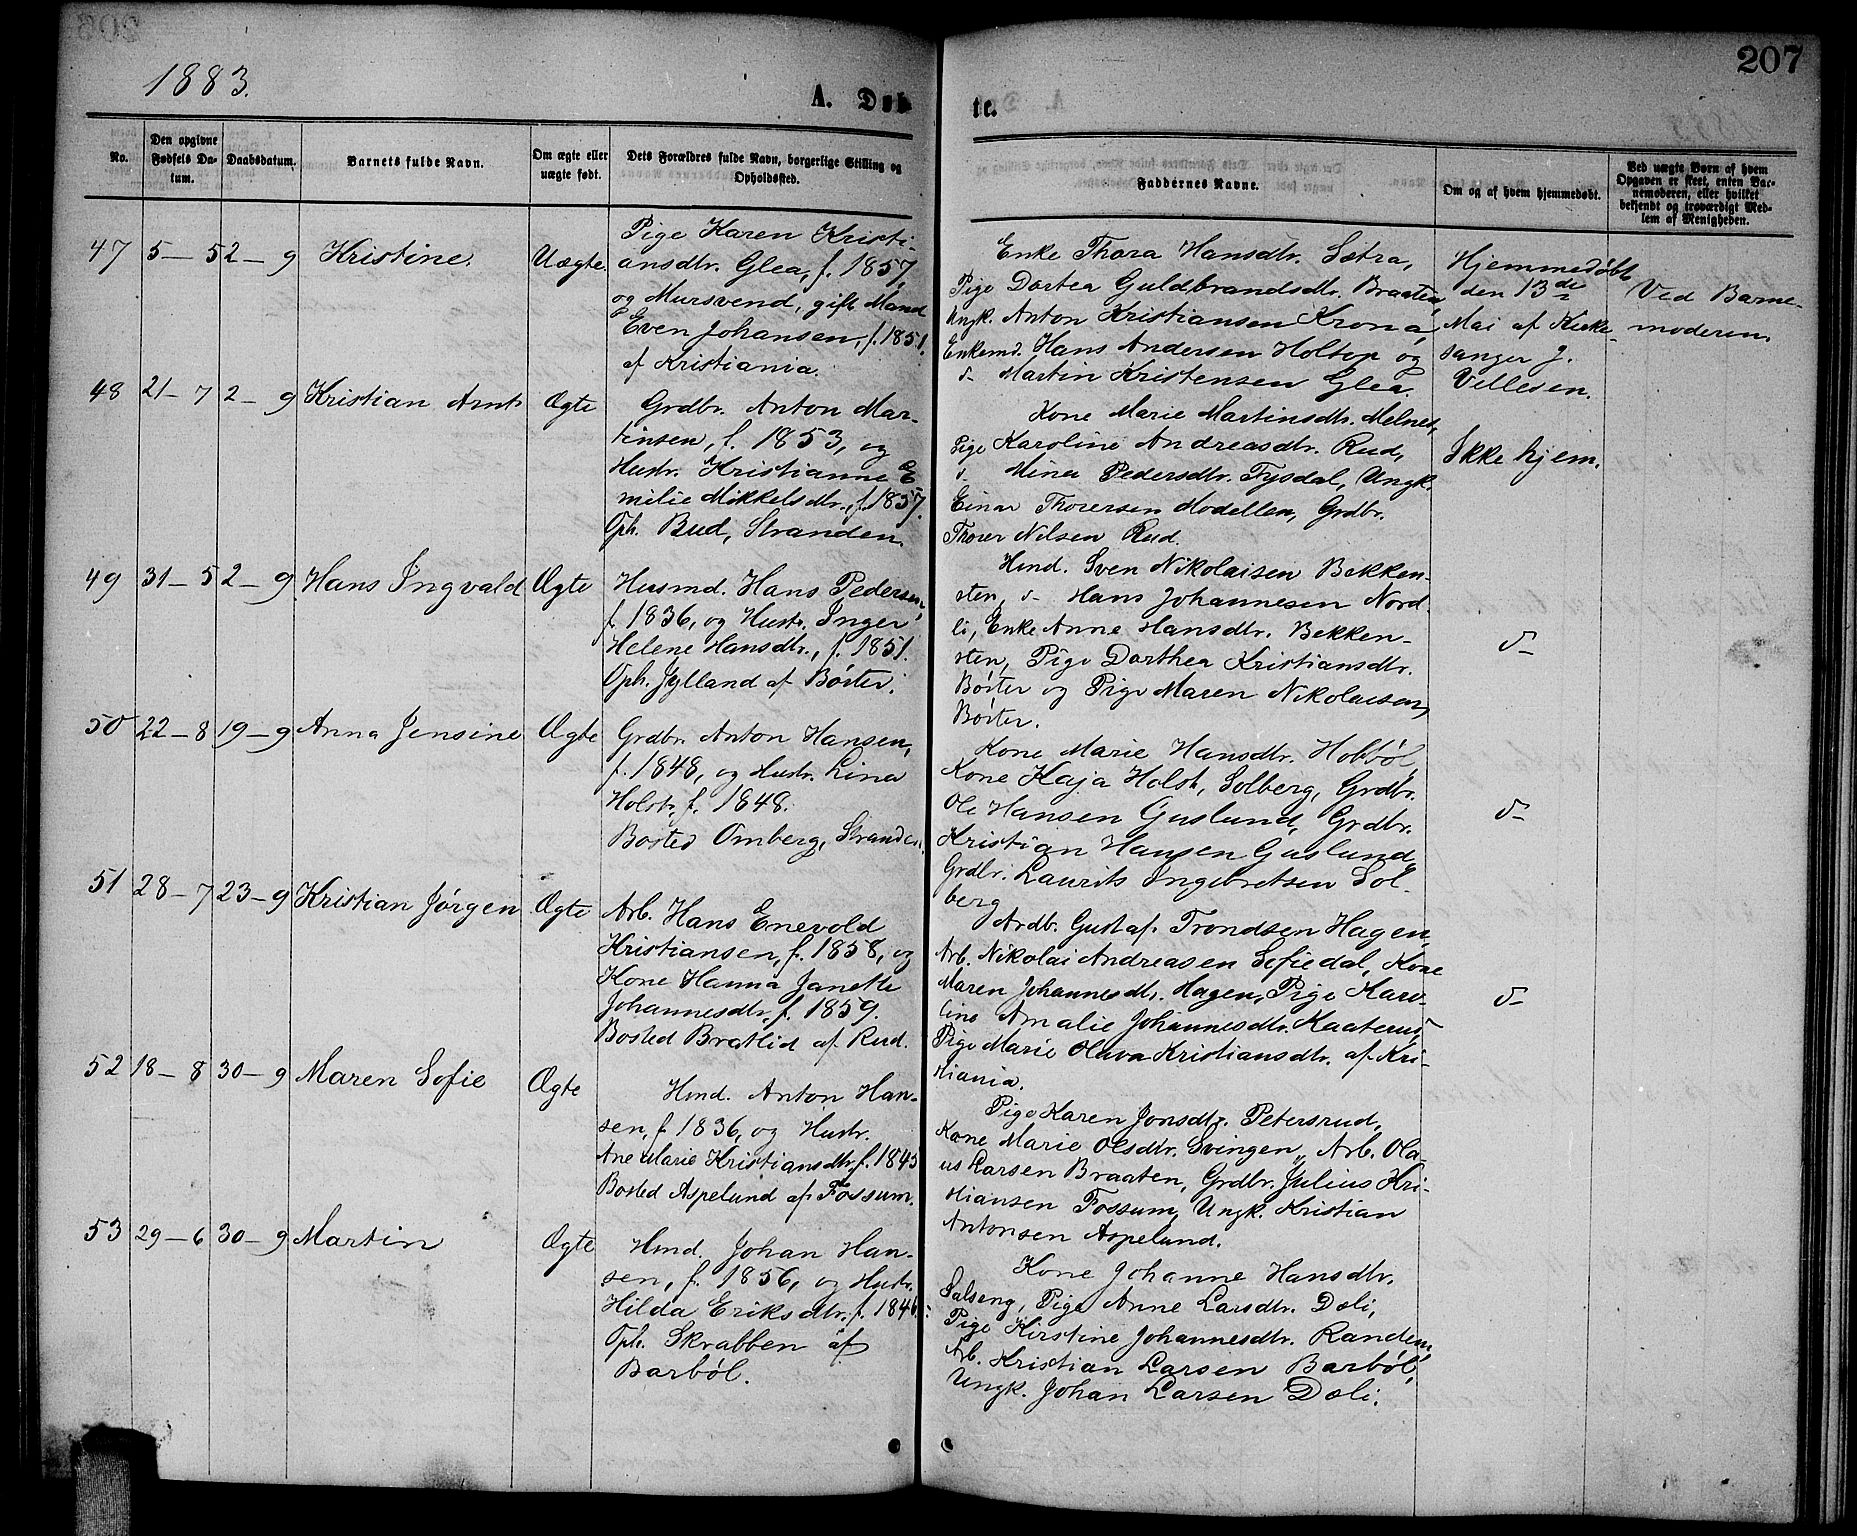 1883.
207
A. Døb
te.
No.
Den opgivne Fødsels Datum.
Daabsdatum.
Barnets fulde Navn.
Om ægte eller uægte født.
Dets Forældres fulde Navn, borgerlige Stilling og Opholdssted.
Faddernes Navne.
Om og af hvem hjemmedøbt.
Ved uægte Børn af hvem Opgaven er skeet, enten Barnemoderen, eller hvilket bekjendt og troværdigt Medlem af Menigheden.
47 5-5 2-9 Kristine. Uægte.
Pige Karen Kristi-
ansdtr. Glea, f. 1857,
og Mursvend, gift Mand
Even Johansen, f. 1851.
af Kristiania.
Enke Thora Hansdtr. Sætra,
Pige Dortea Guldbrandsdtr. Braaten,
Ungk. Anton Kristiansen Krona,
Enkemd. Hans Andersen Holtop og
d- Martin Kristensen Glea.
Hjemmedøbt
den 13de
Mai af Kirke-
sanger J.
Vellesen.
Ved Barne-
moderen.
48 21-7 2-9 Kristian Arnt Ægte
Grdbr. Anton Mar-
tinsen, f. 1853, og
Hustr. Kristianne E
milie Mikkelsdtr., f. 1857.
Oph. Bud, Stranden.
Kone Marie Martinsdtr. Melnes,
Pige Karoline Andreasdtr. Rud,
d. Mina Pedersdtr. Fysdal, Ungk.
Einar Thorersen Modellen, Grdbr.
Thorer Nilsen Rud.
Ikke hjem.
49 31-5 2-9 Hans Ingvald Ægte
Husmd. Hans Pedersen,
f. 1836, og Hustr. Inger
Helene Hansdtr., f. 1851.
Oph. Jylland af Børter.
Hmd. Sven Nikolaisen Bekken-
sten, d- Hans Johannesen Nord-
li, Enke Anne Hansdtr. Bekken-
sten, Pige Dorthea Kristiansdtr.
Børter og Pige Maren Nikolaisen,
Børter.
d-
50 22-8 19-9 Anna Jensine Ægte
Grdbr. Anton Hansen,
f. 1848, og Hustr. Lina
Holst, f. 1848.
Bosted Omberg, Stranden.
Kone Marie Hansdtr. Hobbøl,
Kone Kaja Holst, Solberg, Grdbr.
Ole Hansen Guslund, Grdbr.
Kristian Hansen Guslund,
Grdbr. Laurits Ingebretsen Sol-
berg
d-
51 28-7 23-9 Kristian Jørgen Ægte
Arb. Hans Enevold
Kristiansen, f. 1858, og
Kone Hanna Janette
Johannesdtr., f. 1859.
Bosted Bratlid af Rud.
Grdbr. Gustaf Trondsen Hagen,
Arb. Nikolai Andreasen Sofiedal, Kone
Maren Johannesdtr. Hagen, Pige Karo-
line Amalie Johannesdtr. Kaaterud,
Pige Marie Olava Kristiansdtr. af Kri-
stiania.
d-
52 18-8 30-9 Maren Sofie Ægte
Hmd. Anton Han-
sen, f. 1836, og Hustr.
Ane Marie Kristiansdtr. f. 1845
Bosted Aspelund af Fossum.
Pige Karen Jonsdtr. Petersrud,
Kone Marie Olsdtr. Svingen, Arb. Ola-
us Larsen Braaten, Grdbr. Julius Kri-
stiansen Fossum, Ungk. Kristian
Antonsen Aspelund.
53 29-6 30-9 Martin Ægte
Hmd. Johan Han-
sen, f. 1856, og Hustr.
Hilda Eriksdtr. f. 1846.
Oph. Skrabben af
Barbøl.
Kone Johanne Hansdtr.
Salseng, Pige Anne Larsdtr. Dæli,
Pige Kirstine Johannesdtr. Randem,
Arb. Kristian Larsen Barbøl,
Ungk. Johan Larsen Dæli.